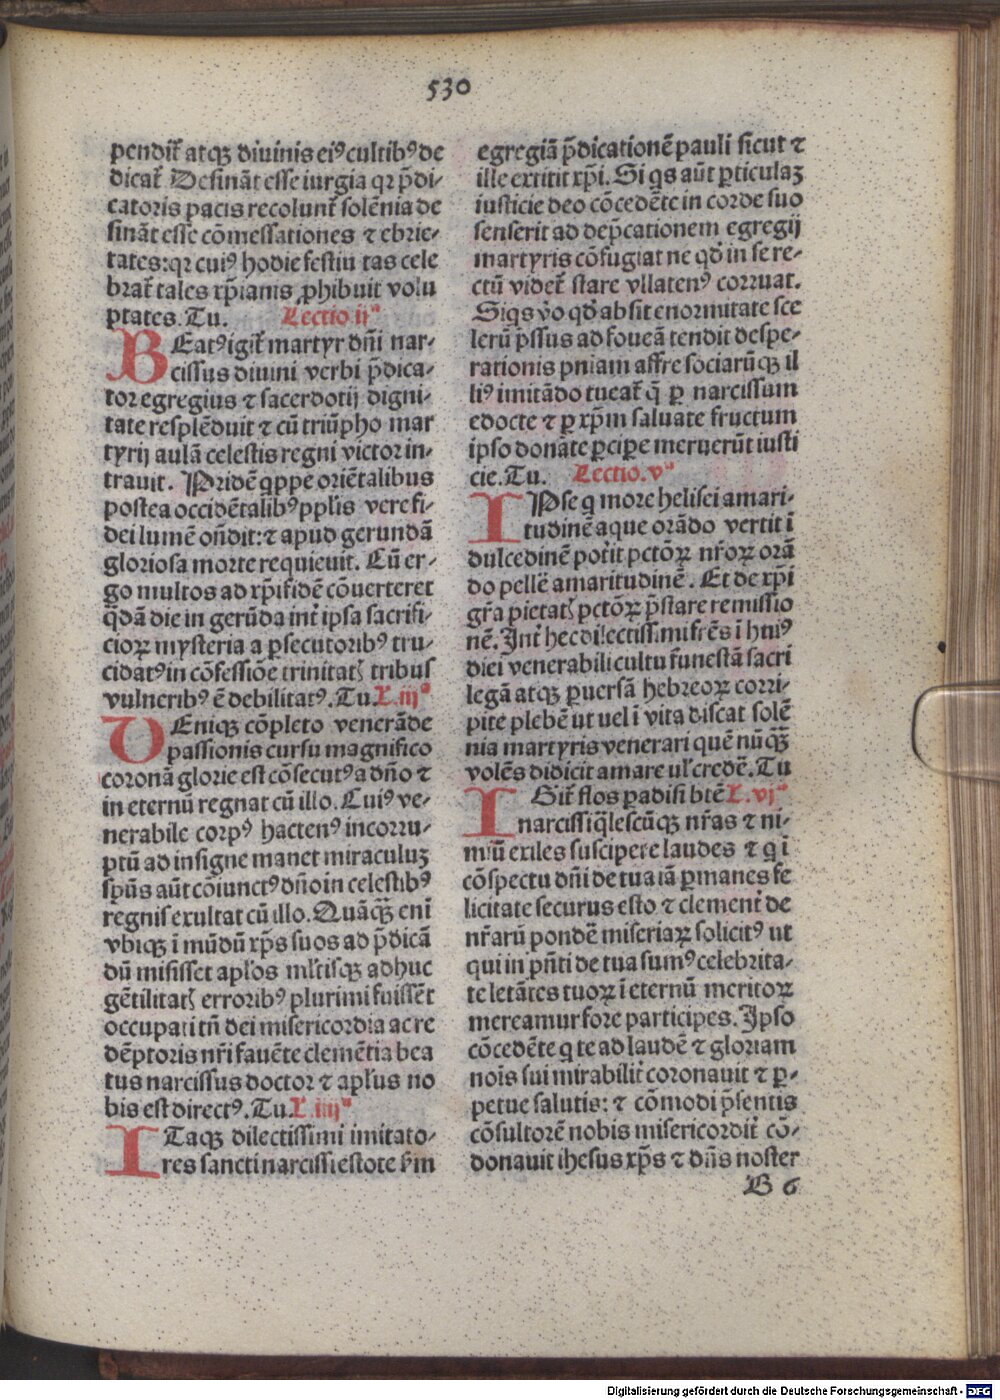 530
pendit̃ atqꝫ diuinis eiꝰ cultibꝰ de
dicat̃ Desinãt esse iurgia qꝛ p̃di-
catoris pacis recolunt̃ solẽnia de
sinãt esse cõmessationes ⁊ ebrie-
tates: qꝛ cuiꝰ hodie festiu tas cele
brat̃ tales xp̃ianis ꝓhibuit volu
ptates. Tu. Lectio ijª
BEatꝰ igit̃ martyr dñi nar-
cissus diuini verbi p̃dica-
tor egregius ⁊ sacerdotij digni-
tate resplẽduit ⁊ cũ triũpho mar
tyrij aulã celestis regni victor in-
trauit. Pridẽ q̃ppe oriẽtalibus
postea occidẽtalibꝰ pplis vere fi-
dei lumẽ oñdit: ⁊ apud gerundã
gloriosa morte requieuit. Cũ er-
go multos ad xp̃i fidẽ cõuerteret
q̃dã die in gerũda int̃ ipsa sacrifi-
cioꝝ mysteria a ꝑsecutoribꝰ tru-
cidatꝰ in cõfessiõe trinitatꝭ tribus
vulneribꝰ ẽ debilitatꝰ. Tu. L. iijª
UEniqꝫ cõpleto venerãde
passionis cursu magnifico
coronã glorie est cõsecutꝰ a dño ⁊
in eternũ regnat cũ illo. Cuiꝰ ve-
nerabile corpꝰ hactenꝰ incorru-
ptũ ad insigne manet miraculuꝫ
sp̃us aũt cõiunctꝰ dño in celestibꝰ
regnis exultat cũ illo. Quãqꝫ̃ enĩ
vbiqꝫ ĩ mũdũ xp̃s suos ad p̃dicã
dũ misisset apl̃os ml̃tisqꝫ adhuc
gẽtilitatꝭ erroribꝰ plurimi fuissẽt
occupati tñ dei misericordia ac re
dẽptoris nr̃i fauẽte clemẽtia bea
tus narcissus doctor ⁊ apl̃us no
bis est directꝰ. Tu. L. iiijª
ITaqꝫ dilectissimi imitato-
res sancti narcissi estote s̃m
egregiã p̃dicationẽ pauli sicut ⁊
ille extitit xp̃i. Si q̃s aũt ꝑticulaꝫ
iusticie deo cõcedẽte in corde suo
senserit ad dep̃cationem egregij
martyris cõfugiat ne qd̃ in se re-
ctũ videt̃ stare vllatenꝰ corruat.
Siq̃s v̊o qd̃ absit enormitate sce
lerũ p̃ssus ad foueã tendit despe-
rationis pniam affr̃e sociarũqꝫ il
liꝰ imitãdo tueat̃ q̃ ꝑ narcissum
edocte ⁊ ꝑ xp̃m saluate fructum
ipso donãte ꝑcipe meruerũt iusti
cie. Tu. Lectio. vª
IPse q̃ more helisei amari-
tudinẽ aque orãdo vertit ĩ
dulcedinẽ potit̃ pctõꝝ nr̃oꝝ orã
do pellẽ amaritudinẽ. Et de xp̃i
gr̃a pietatꝭ pctõꝝ p̃stare remissio
nẽ. Int̃ hec dilectissimi fr̃es ĩ hmꝰ
diei venerabili cultu funestã sacri
legã atqꝫ ꝑuersã hebreoꝝ corri-
pite plebẽ ut uel ĩ vita discat solẽ
nia martyris venerari quẽ nũqꝫ̃
volẽs didicit amare ul̃ credẽ. Tu
IGit̃ flos ꝑadisi btẽ L. vjª
narcissi q̃lescũqꝫ nr̃as ⁊ ni-
miũ exiles suscipere laudes ⁊ q̃ ĩ
cõspectu dñi de tua iã ꝑmanes fe
licitate securus esto ⁊ clement̃ de
nr̃arũ pondẽ miseriaꝝ solicitꝰ ut
qui in p̃nti de tua sumꝰ celebrita-
te letãtes tuoꝝ ĩ eternũ meritoꝝ
mereamur fore participes. Ipso
cõcedẽte q̃ te ad laudẽ ⁊ gloriam
nois̃ sui mirabilit̃ coronauit ⁊ ꝑ-
petue salutis: ⁊ cõmodi p̃sentis
cõsultorẽ nobis misericordit̃ cõ-
donauit ihesus xp̃s ⁊ dñs noster
B 6
Digitalisierung gefördert durch die Deutsche Forschungsgemeinschaft - DFG